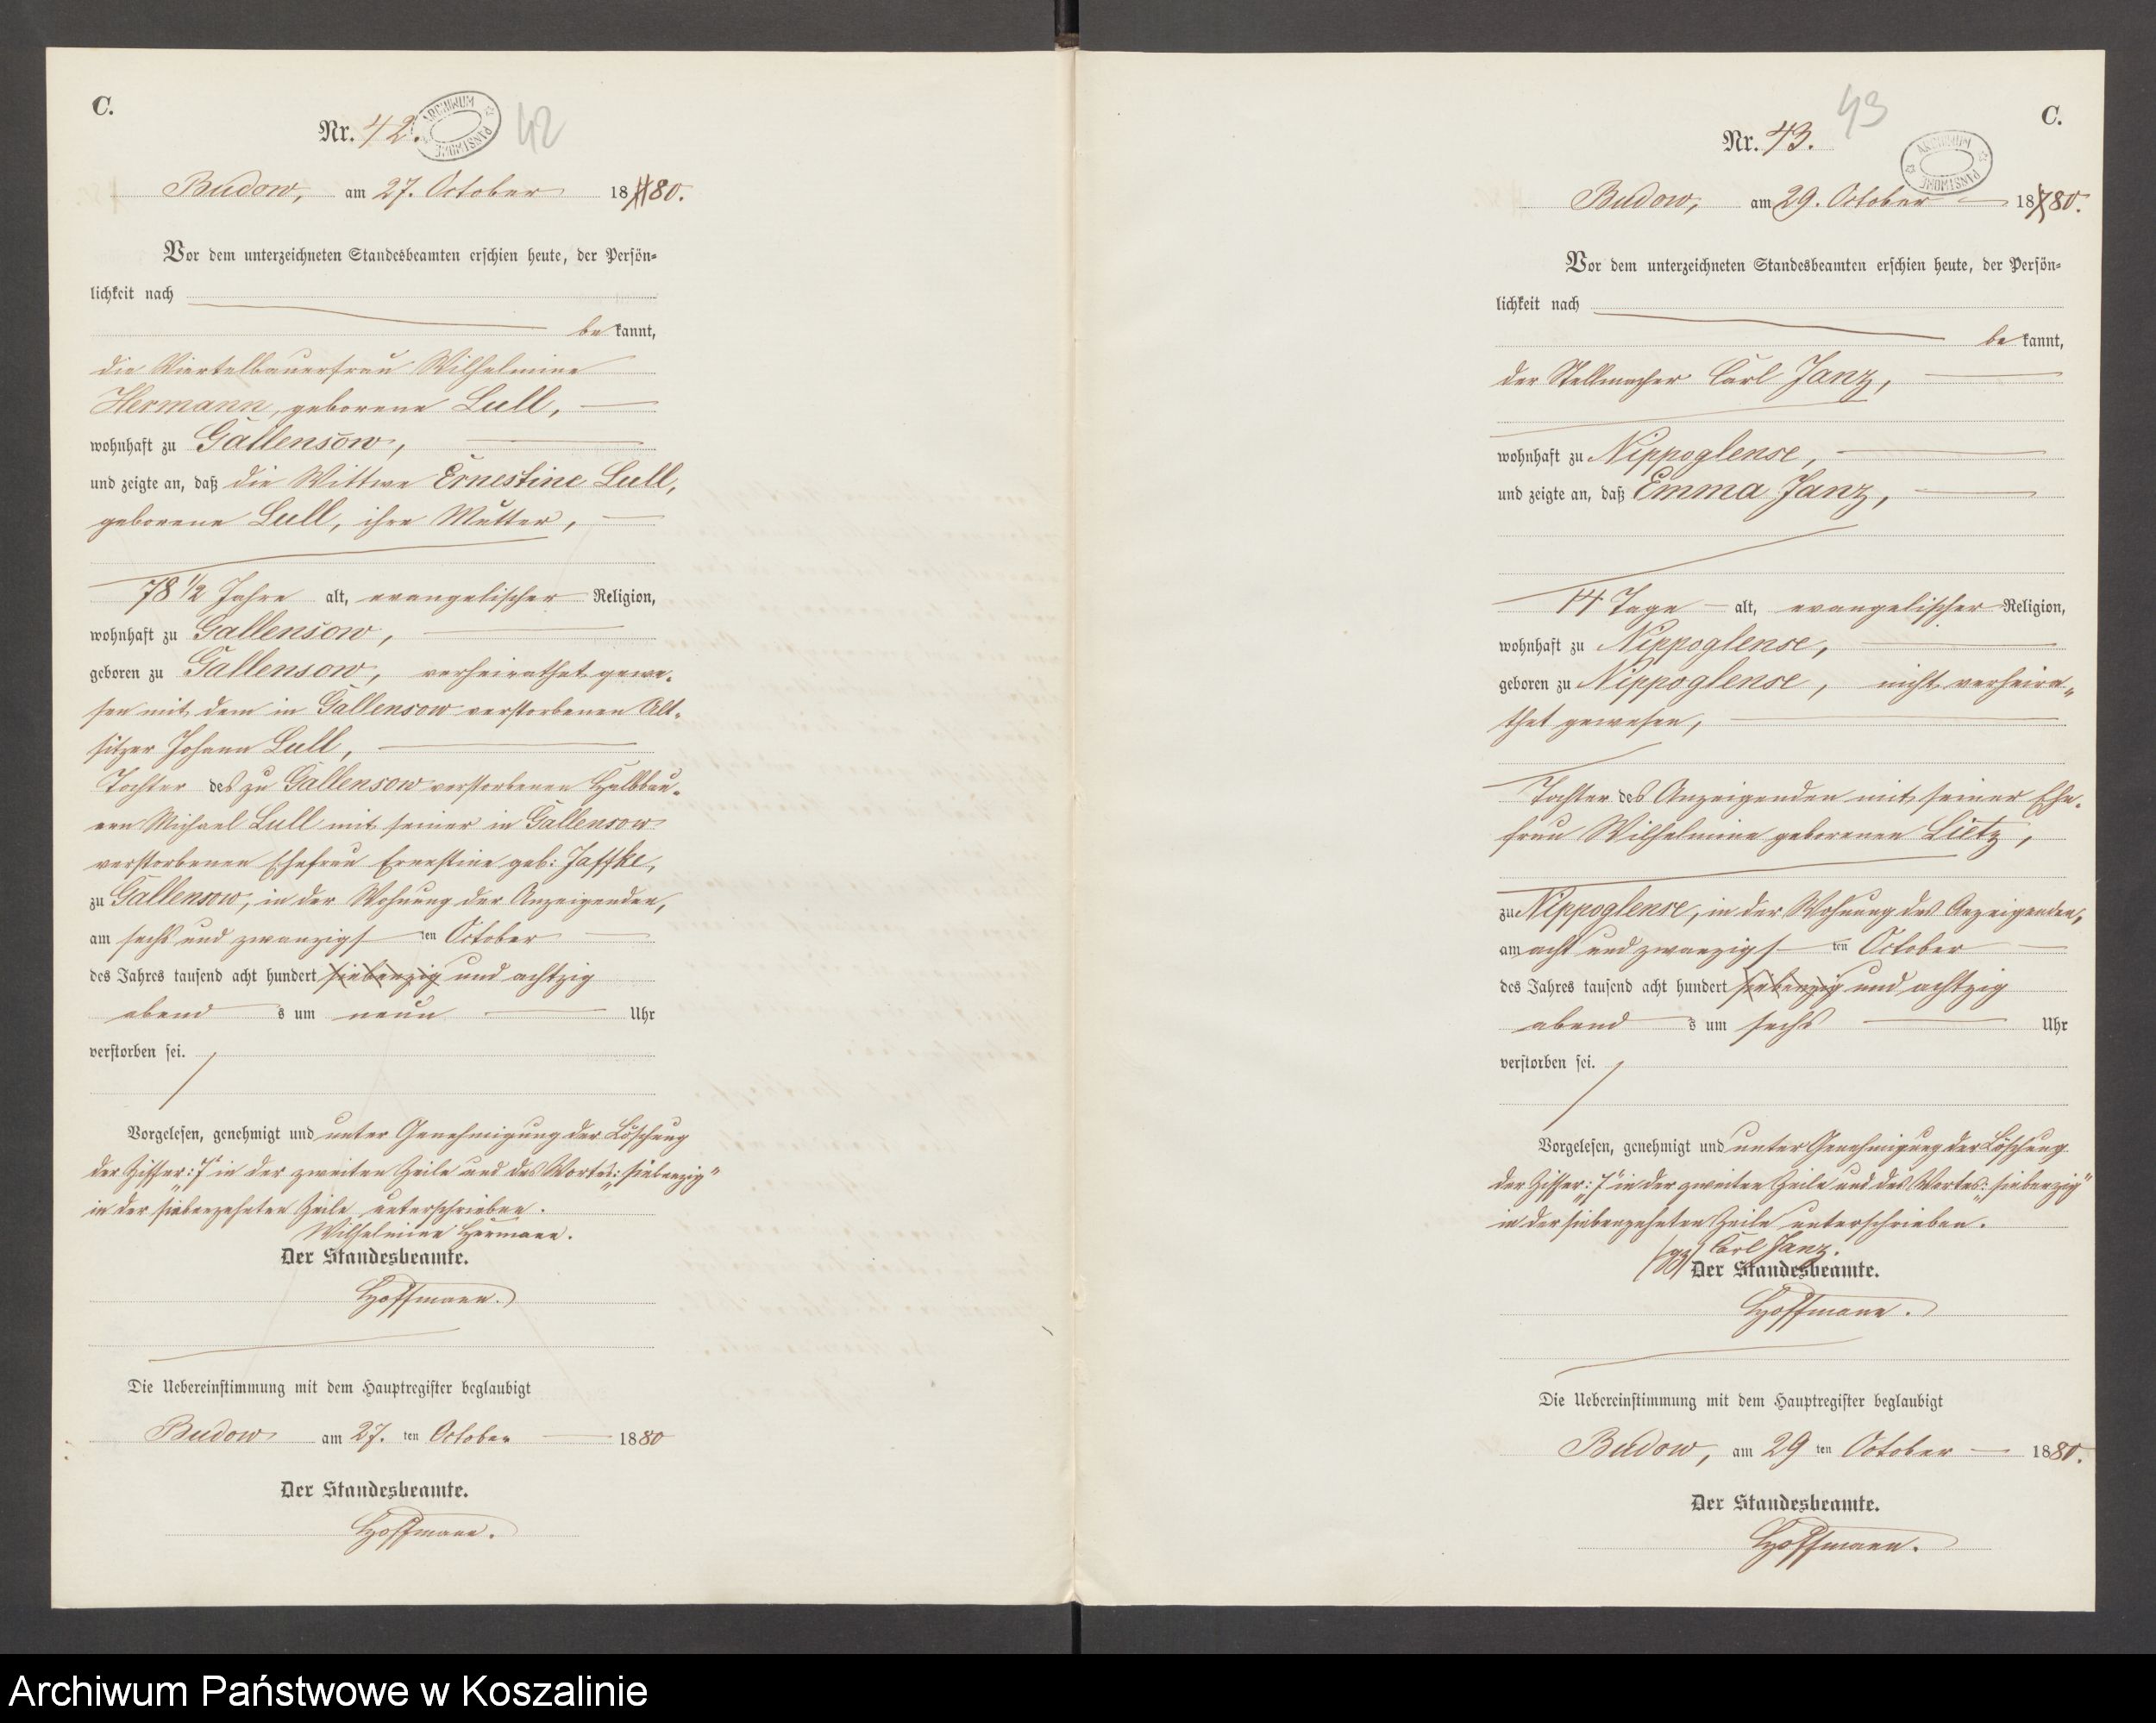 C.
Nr. 42.
ARCHIWUM PAŃSTWOWE
42
Budow, am 27. October 18780.
Vor dem unterzeichneten Standesbeamten erschien heute, der Persön=
lichkeit nach
be kannt,
die Viertelbauerfrau Wilhelmine
Hermann, geborene Lull,
wohnhaft zu Gallensow,
und zeigte an, daß die Wittwe Ernestine Lull,
geborene Lull, ihre Mutter,
78 1/2 Jahre alt, evangelischer Religion,
wohnhaft zu Gallensow,
geboren zu Gallensow, verheirathet gewe-
sen mit dem in Gallensow verstorbenen Alt-
sitzer Johann Lull,
Tochter des zu Gallensow verstorbenen Halbbau-
ern Michael Lull mit seiner in Gallensow
verstorbenen Ehefrau Ernestine geb: Jaffke,
zu Gallensow, in der Wohnung der Anzeigenden,
am sechs und zwanzigsten October
des Jahres tausend acht hundert siebenzig und achtzig
abend s um neun Uhr
verstorben sei.
Vorgelesen, genehmigt und unter Genehmigung der Löschung
der Ziffer: „7“ in der zweiten Zeile und des Wortes: „siebenzig“
in der siebenzehnten Zeile unterschrieben.
Wilhelmine Hermann.
Der Standesbeamte.
Hoffmann.
Die Uebereinstimmung mit dem Hauptregister beglaubigt
Budow am 27. ten October 1880
Der Standesbeamte.
Hoffmann.
43
C.
Nr. 43.
ARCHIWUM PAŃSTWOWE
Budow, am 29. October 18780.
Vor dem unterzeichneten Standesbeamten erschien heute, der Persön=
lichkeit nach
be kannt,
der Stellmacher Carl Janz,
wohnhaft zu Nippoglense,
und zeigte an, daß Emma Janz,
14 Tage alt, evangelischer Religion,
wohnhaft zu Nippoglense,
geboren zu Nippoglense, nicht verheira-
thet gewesen,
Tochter des Anzeigenden mit seiner Ehe-
frau Wilhelmine geborenen Lietz,
zu Nippoglense, in der Wohnung des Anzeigenden,
am acht und zwanzigsten October
des Jahres tausend acht hundert siebenzig und achtzig
abend s um sechs Uhr
verstorben sei.
Vorgelesen, genehmigt und unter Genehmigung der Löschung
der Ziffer: „7“ in der zweiten Zeile und des Wortes: „siebenzig“
in der siebenzehnten Zeile unterschrieben.
(gz) Carl Janz.
Der Standesbeamte.
Hoffmann.
Die Uebereinstimmung mit dem Hauptregister beglaubigt
Budow, am 29 ten October 1880.
Der Standesbeamte.
Hoffmann.
Archiwum Państwowe w Koszalinie